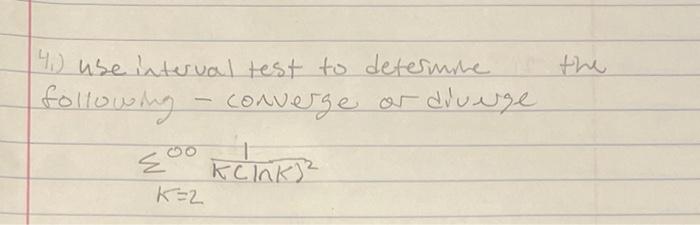 4.) use interval test to determine the
following - converge or diverge
∞
Σ 1/K(lnK)²
K=2